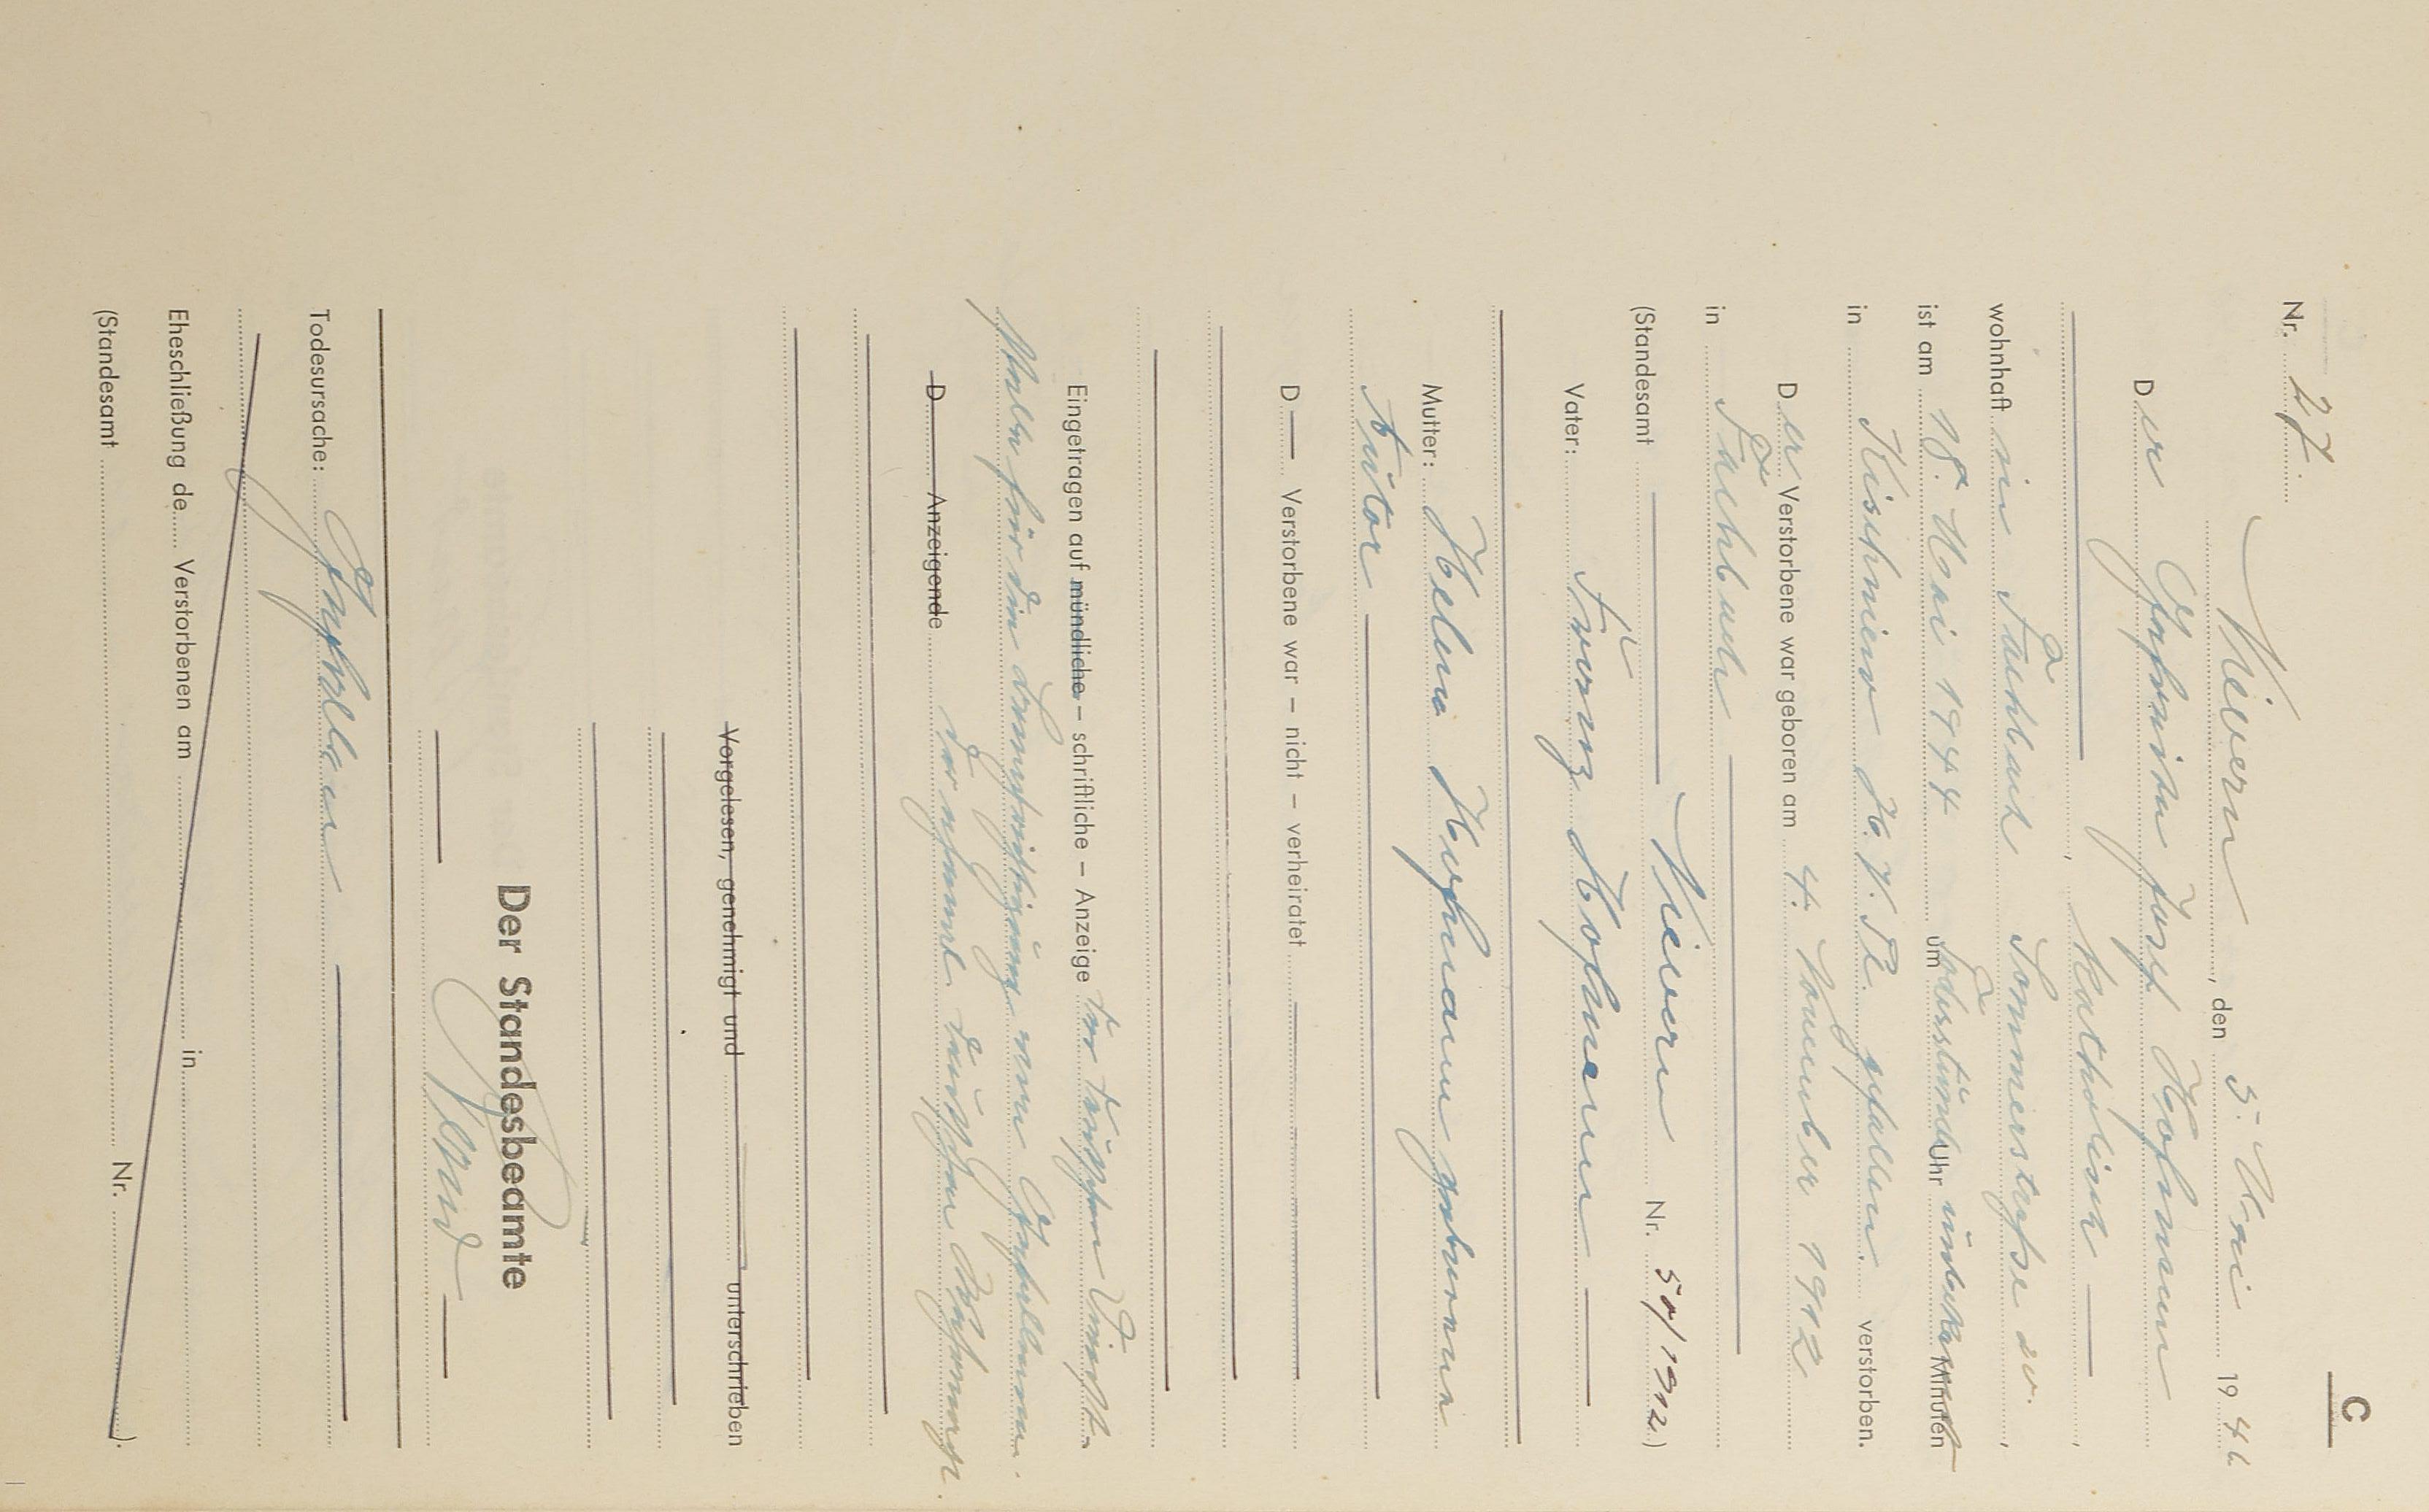 C
Nr. 27.
Kevern, den 3. Mai 1946
Der Gefreite Josef Hofmann
katholisch
wohnhaft in Fachbach Sommerstraße 20.
ist am 18. Mai 1944 um Todesstunde Uhr unbekannt Minuten
in Kischinew H.V.Pl. gefallen. verstorben.
Der Verstorbene war geboren am 4. November 1912
in Fachbach
(Standesamt Nievern Nr. 50/1912)
Vater: Franz Hofmann
Mutter: Helene Hofmann geborene
D Verstorbene war – nicht – verheiratet
Eingetragen auf mündliche – schriftliche – Anzeige der Deutschen Dienst-
stelle für die Benachrichtigung von Gefallenen
D Anzeigende der ehemal. deutschen Wehrmacht.
Vorgelesen, genehmigt und unterschrieben
Der Standesbeamte
Todesursache: Gefallen
Eheschließung de Verstorbenen am in
(Standesamt Nr. ).